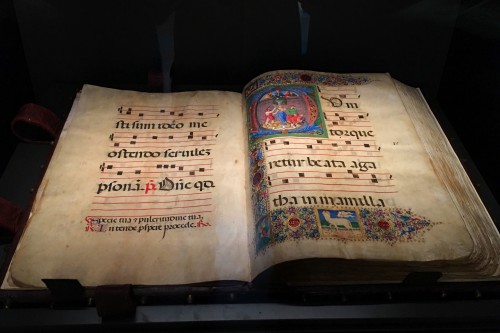 sti sum ideo me
ostendo seruilez
psonā. Dñe qd
Specie tua 7 pulcritudine tua
Intende pspere procede
Dum
torque
retur beata aga
tha in mamilla